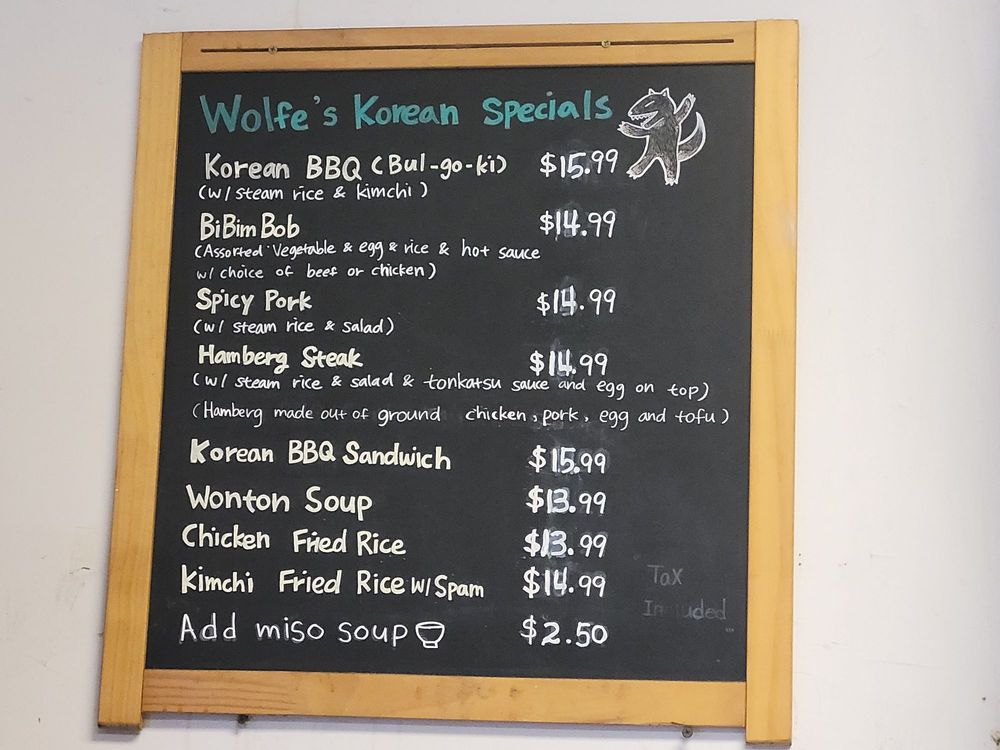 Wolfe's Korean Specials
Korean BBQ (Bul-go-ki) $15.99
(w/ steam rice & kimchi)
BiBim Bob $14.99
(Assorted Vegetable & egg & rice & hot sauce
w/ choice of beef or chicken)
Spicy Pork $14.99
(w/ steam rice & salad)
Hamberg Steak $14.99
(w/ steam rice & salad & tonkatsu sauce and egg on top)
(Hamberg made out of ground chicken, pork, egg and tofu)
Korean BBQ Sandwich $15.99
Wonton Soup $13.99
Chicken Fried Rice $13.99
Kimchi Fried Rice w/ Spam $14.99
Tax
Included
Add miso soup $2.50